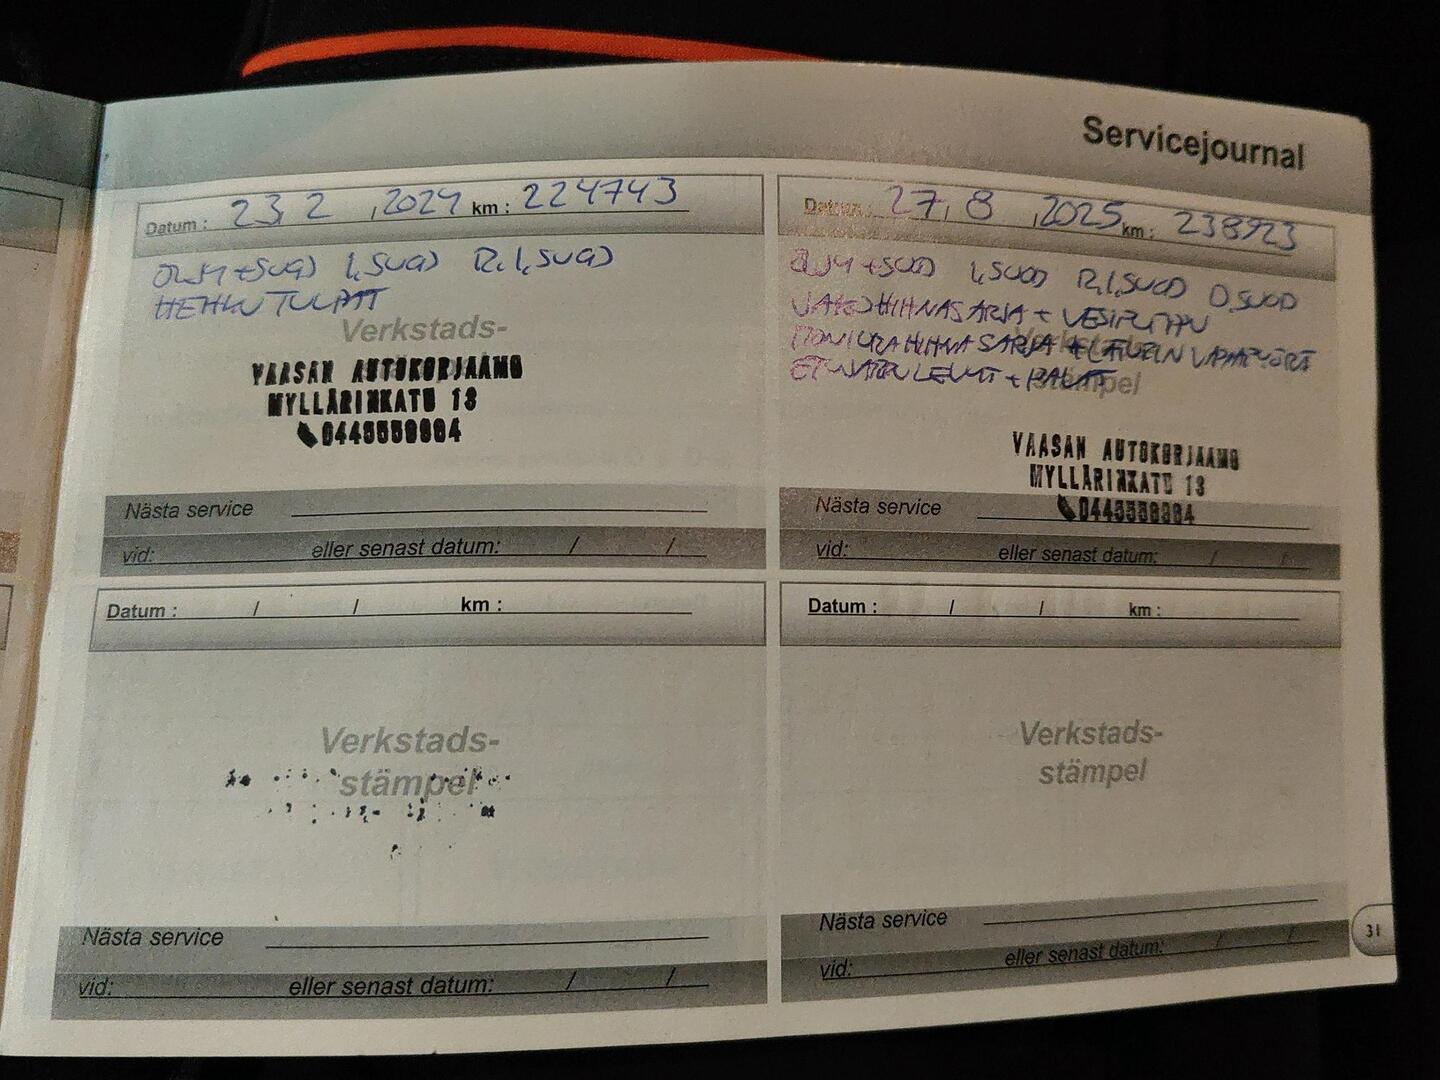 Servicejournal
Datum : 23, 2 , 2024 km : 224743
ÖLJY +SUOD I,SUOD R,I,SUOD
HEHKUTULPAT
Verkstads-
VAASAN AUTOKORJAAMO
MYLLÄRINKATU 13
Nästa service
vid: eller senast datum: / /
Datum : 27, 8 , 2025 km : 238923
ÖLJY +SUOD I,SUOD R,I,SUOD D,SUOD
JAKOHIHNASARJA + VESIPUMPPU
MONIURAHIHNASARJA + LATURIN VAPAAPYÖRÄ
ETUJARRULEVYT + PALAT
Verkstads-
stämpel
VAASAN AUTOKORJAAMO
MYLLÄRINKATU 13
Nästa service
vid: eller senast datum: / /
Datum : / / km :
Verkstads-
stämpel
Nästa service
vid: eller senast datum: / /
Datum : / / km :
Verkstads-
stämpel
Nästa service
vid: eller senast datum: / /
31